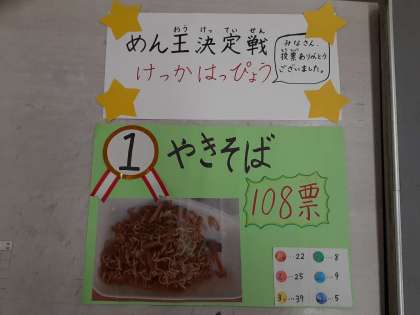 めん王決定戦
おう けっ てい せん
けっかはっぴょう
みなさん、
投票ありがとう
ございました。
1
やきそば
108票
…22
…8
…25
…9
…39
…5